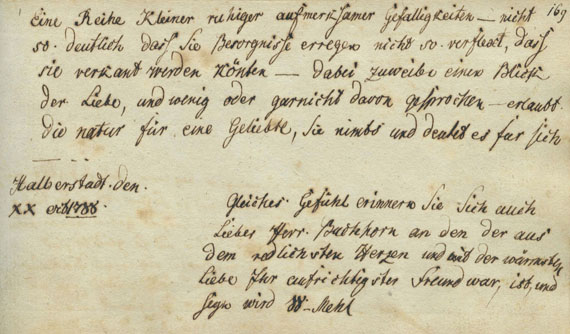 169
Eine Reihe Kleiner ruhiger aufmerksamer Gefälligkeiten — nicht
so deutlich dass Sie Besorgnisse erregen nicht so verstekt, dass
sie verkant werden Könten — dabei zuweile einen Blick
der Liebe, und wenig oder garnicht davon gesprochen — erlaubt
die natur für eine Geliebte, Sie nimts und deutet es für sich
Halberstadt. den.
XX
gleiches Gefühl erinnern Sie Sich auch
Liebes Herr. Buchhorn an den der aus
dem redlichsten Herzen und mit der wärmsten
Liebe Ihr aufrichtigster Freund war, ist, und
seyn wird W. Mehl